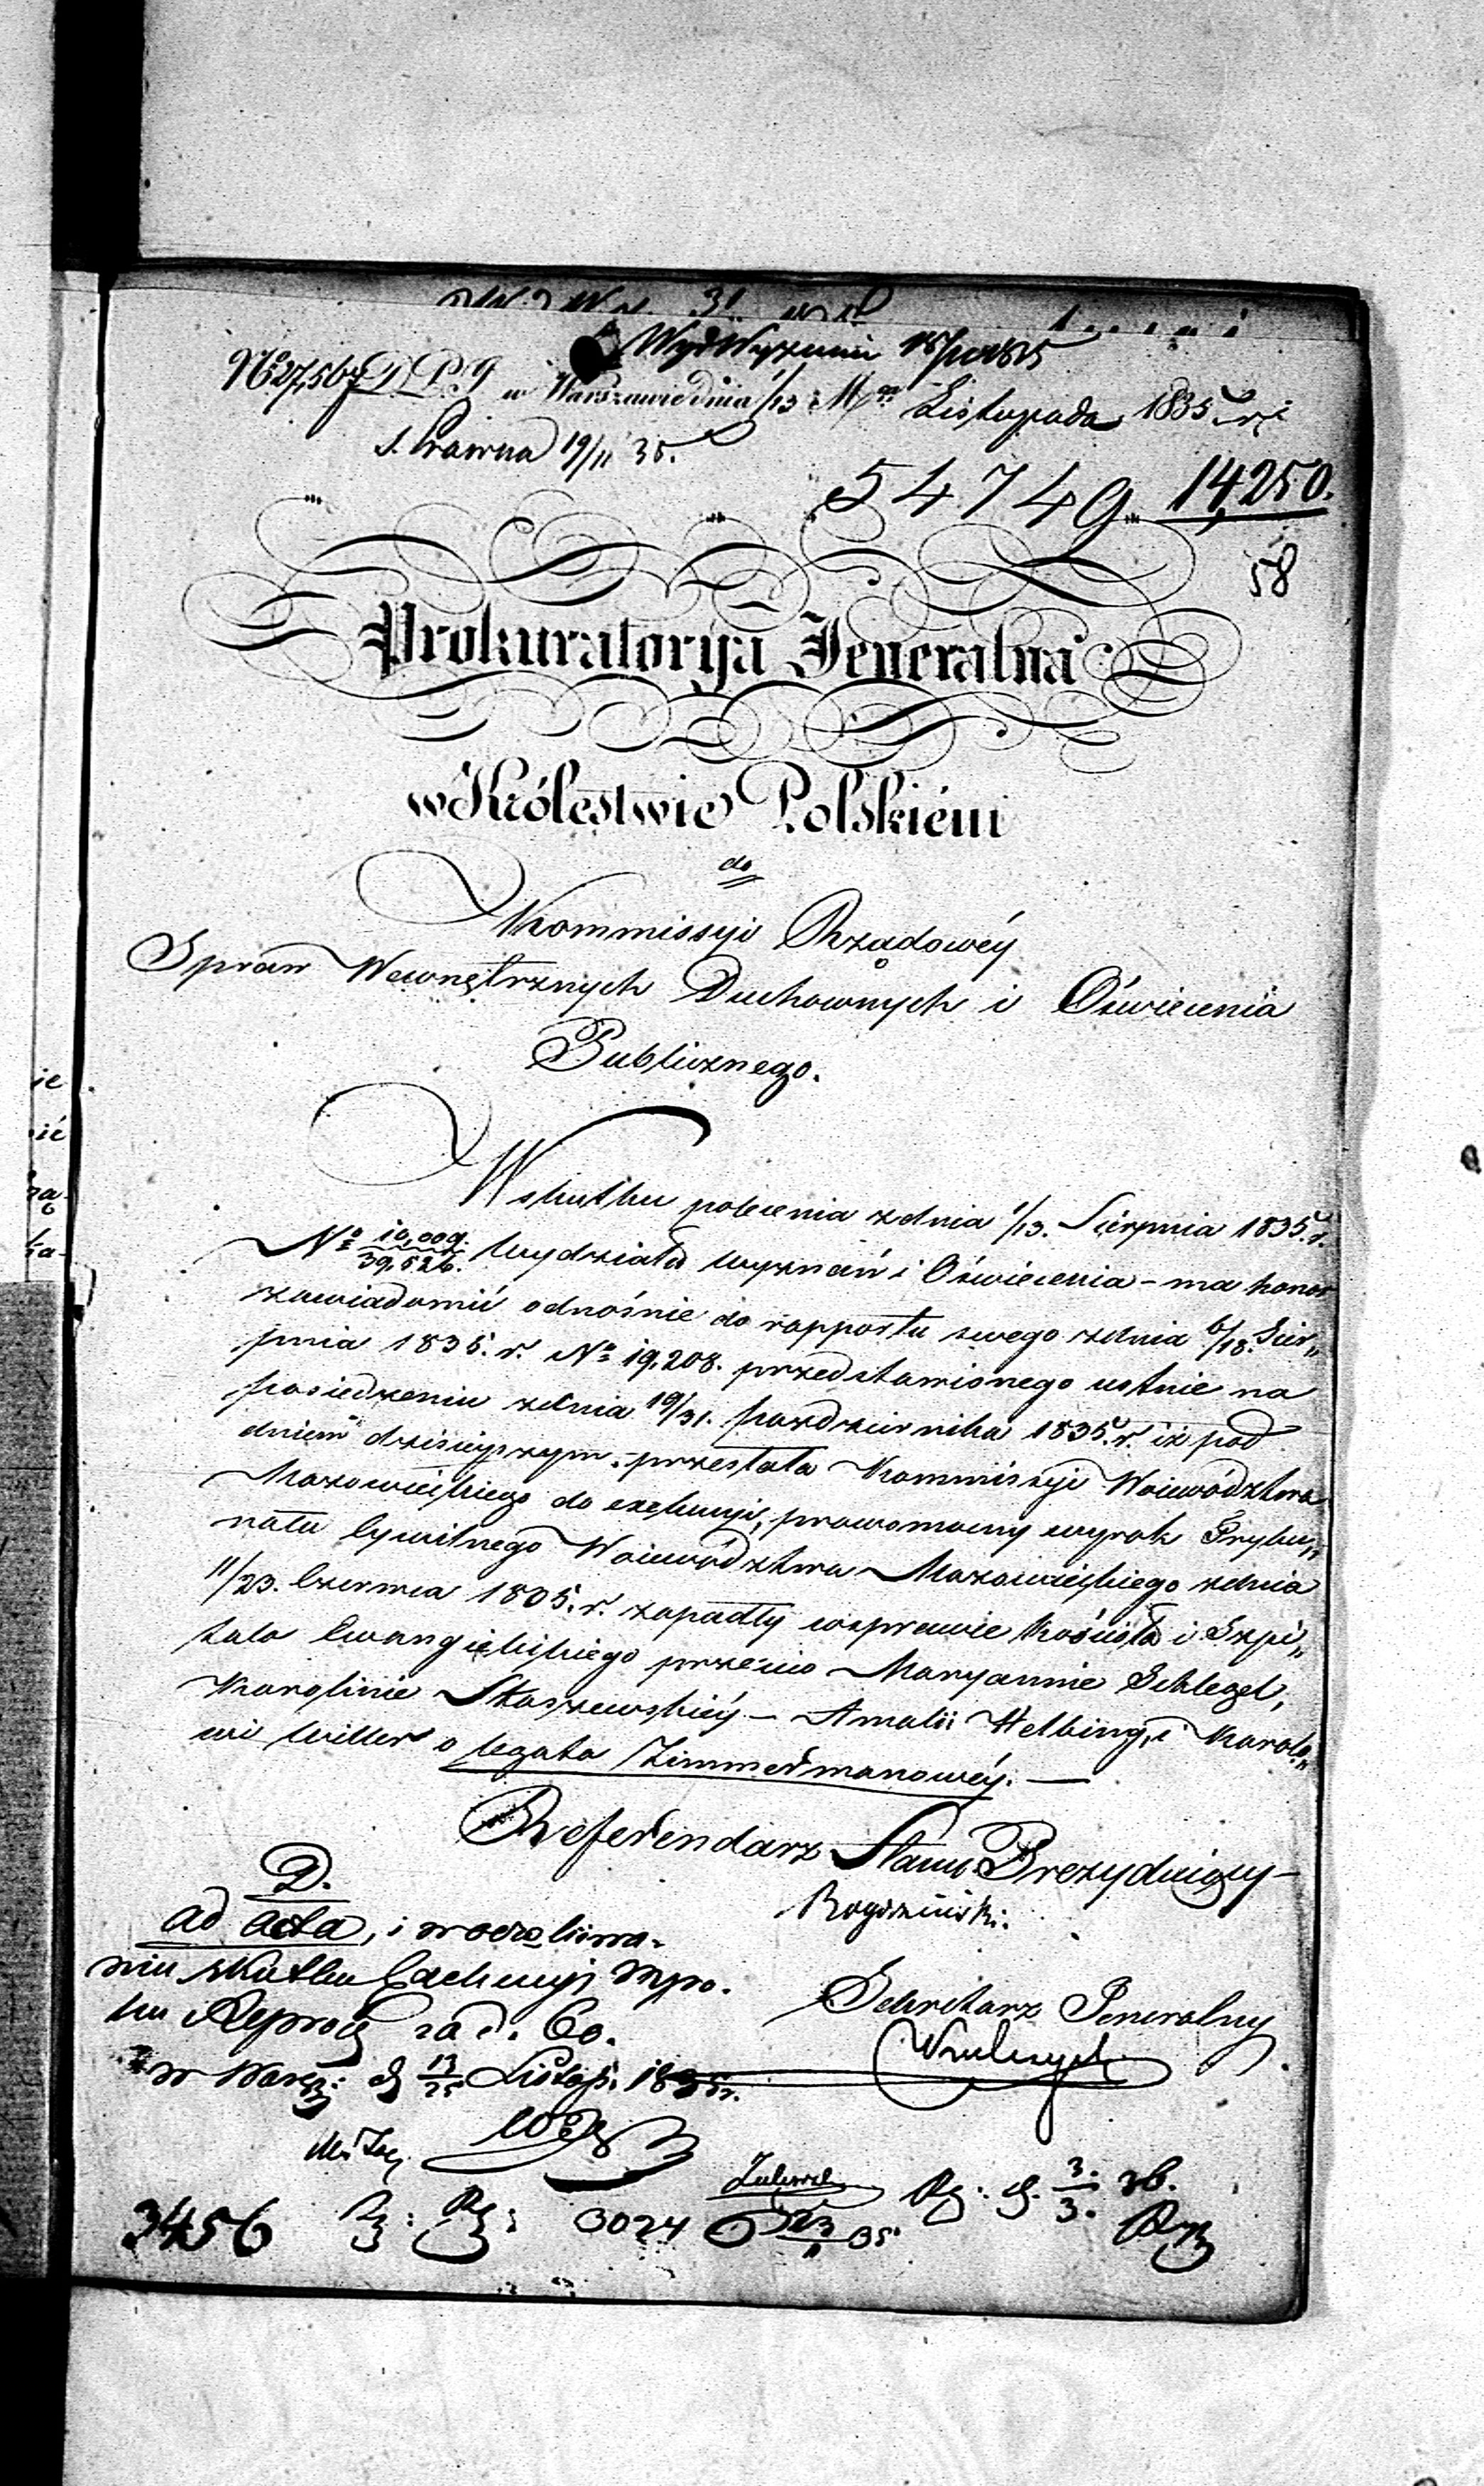 Wyd Wyznań
№ 27,567 D. P. 9 w Warszawie dnia 1/13 M-ca Listopada 1835 r.
S. Prawna 19/11 35.
54749 14,250.
58
Prokuratorya Jeneralna
w Królestwie Polskiém
do
Kommissyi Rządowéy
Spraw Wewnętrznych Duchownych i Oświecenia
Publicznego.
W skutku polecenia z dnia 1/13. Sierpnia 1835. r.
№ 10,009./39,526. Wydziału Wyznań i Oświecenia – ma honor
zawiadomić odnośnie do rapportu swego z dnia 6/18. Sier„
pnia 1835. r. № 19,208. przedstawionego ustnie na
posiedzeniu z dnia 19/31. Października 1835. r. iż pod
dniem dzisieyszym przesłała Kommissyi Woiewództwa
Mazowieckiego do exekucyi, prawomocny wyrok Trybu„
nału Cywilnego Woiewództwa Mazowieckiego z dnia
11/23. Czerwca 1835. r. zapadły w sprawie Kościoła i Szpi„
tala Ewangielickiego przeciw Maryannie Schlegel,
Karolinie Staszewskiéy – Amalii Helbing, i Karolo„
wi Willer o legata Zimmermanowéy. —
Referendarz Stanu Prezyduiący
D.
ad acta, i w oczekiwa-
niu skutku Exekucyi
Sekretarz Jeneralny
w Warsz: d. 13/25 Listop. 1835 r.
3456 3024